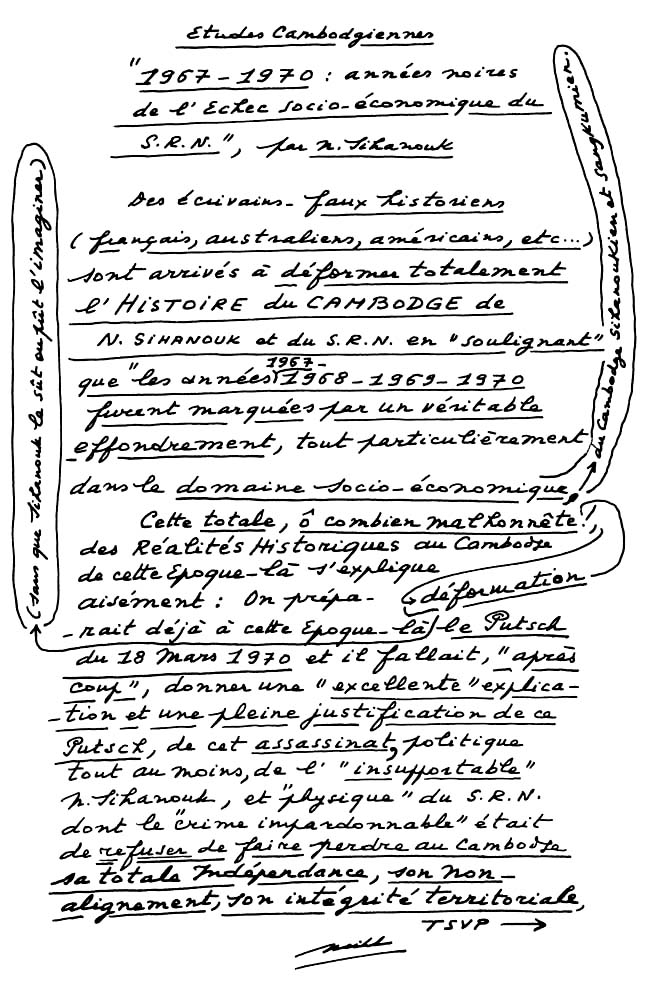 Etudes Cambodgiennes
"1967-1970 : années noires
de l'Echec socio-économique du
S.R.N.", par N. Sihanouk
Des écrivains-faux historiens
(français, australiens, américains, etc...)
sont arrivés à déformer totalement
l'HISTOIRE du CAMBODGE de
N. SIHANOUK et du S.R.N. en "soulignant"
1967-
que "les années 1968-1969-1970
furent marquées par un véritable
effondrement, tout particulièrement
dans le domaine socio-économique,
du Cambodge Sihanoukien et Sangkumien.
Cette totale, ô combien malhonnête!,
déformation
des Réalités Historiques au Cambodge
de cette Epoque-là s'explique
aisément : On prépa-
-rait déjà à cette Epoque-là
(sans que Sihanouk le sût ou pût l'imaginer)
le Putsch
du 18 Mars 1970 et il fallait, "après
coup", donner une "excellente" explica-
-tion et une pleine justification de ce
Putsch, de cet assassinat, politique
tout au moins, de l'"insupportable"
N. Sihanouk, et "physique" du S.R.N.
dont le "crime impardonnable" était
de refuser de faire perdre au Cambodge
sa totale Indépendance, son Non-
alignement, son intégrité territoriale,
TSVP →